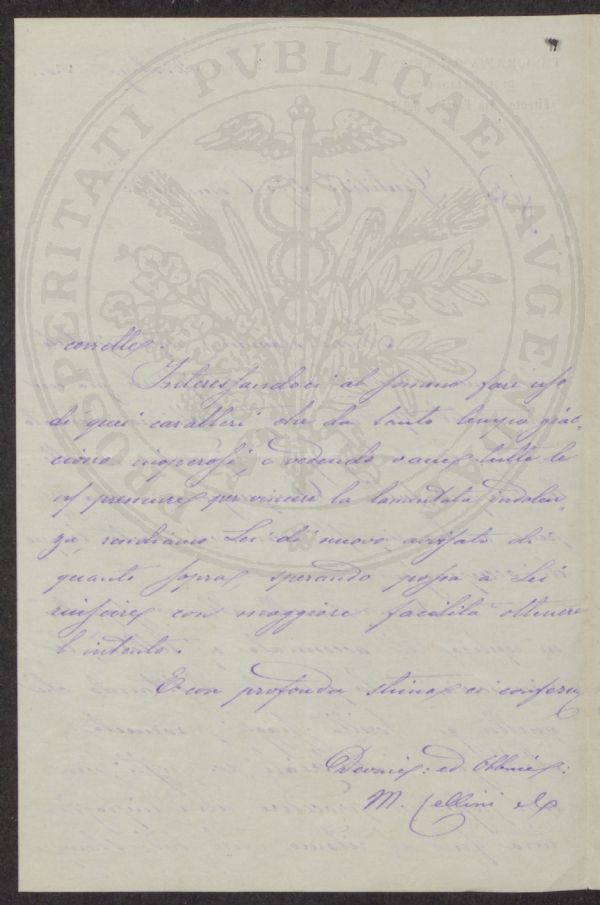 PROSPERITATI PVBLICAE AVGENDAE
corrette.
Interessandoci al sommo fare uso
di quei caratteri che da tanto tempo giac-
ciono inoperosi, e vedendo vane tutte le
ns/ premure per vincere la lamentata indolen-
za, rendiamo Lei di nuovo avvisato di
quanto sopra, sperando possa a Lei
riuscire con maggiore facilità ottenere
l'intento.
E con profonda stima ci conferm
Devmi: ed Obbmi:
M. Cellini e C